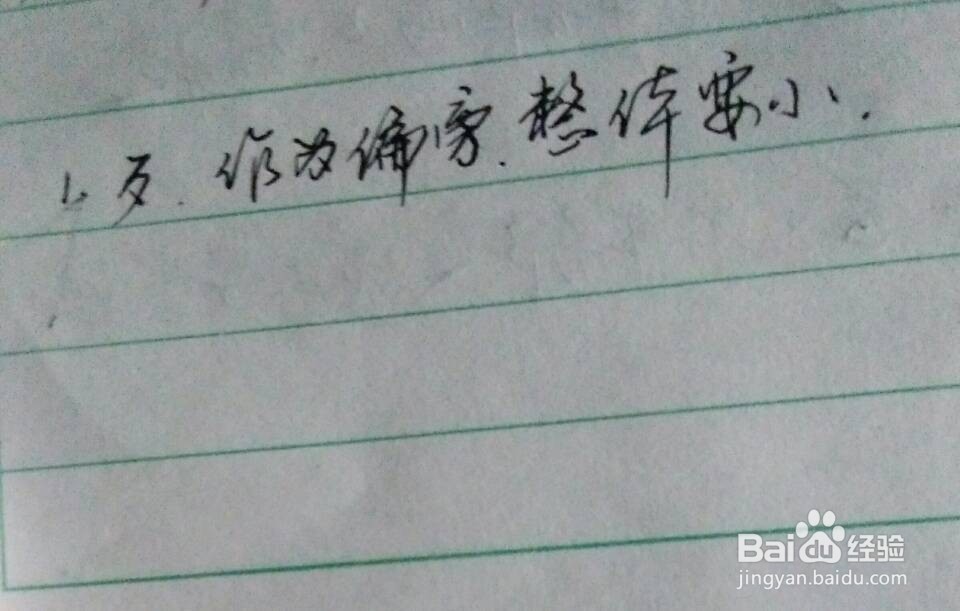 1、歹.作为偏旁.整体要小.
Baidu经验
jingyan.baidu.com